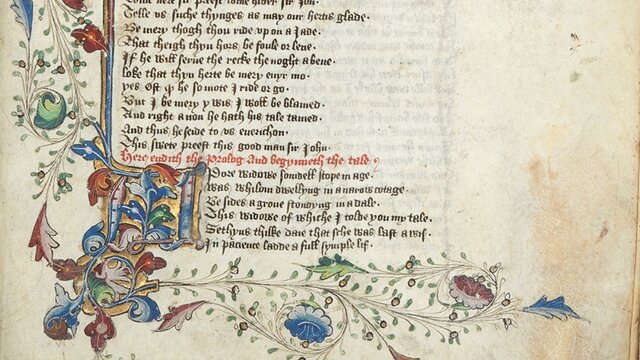 Come nere sir preest come hider sir Jon.
Telle vs suche thynges as may our hertis glade.
Be mery thogh thou ride vp on a Jade.
What theigh thyn hors be foule or lene.
If he will serve the recke the noght a bene.
loke that thyn herte be mery euyr mo.
yes Ost q he so mote I ride or go.
But I be mery y wis I woll be blamed.
And right a non he hath his tale tamed.
And thus he seide to vs euerichon.
This swete preest this good man sir John.
Here endith the Prolog And begynneth the tale.
A Pore widowe somdell stope in age.
Was whilom dwellyng in a narow cotage.
Be sides a grove stondyng in a dale.
This widowe of whiche I tolde you my tale.
Sethyns thilke daie that sche was last a wif.
In pacience ladde a full symple lif.